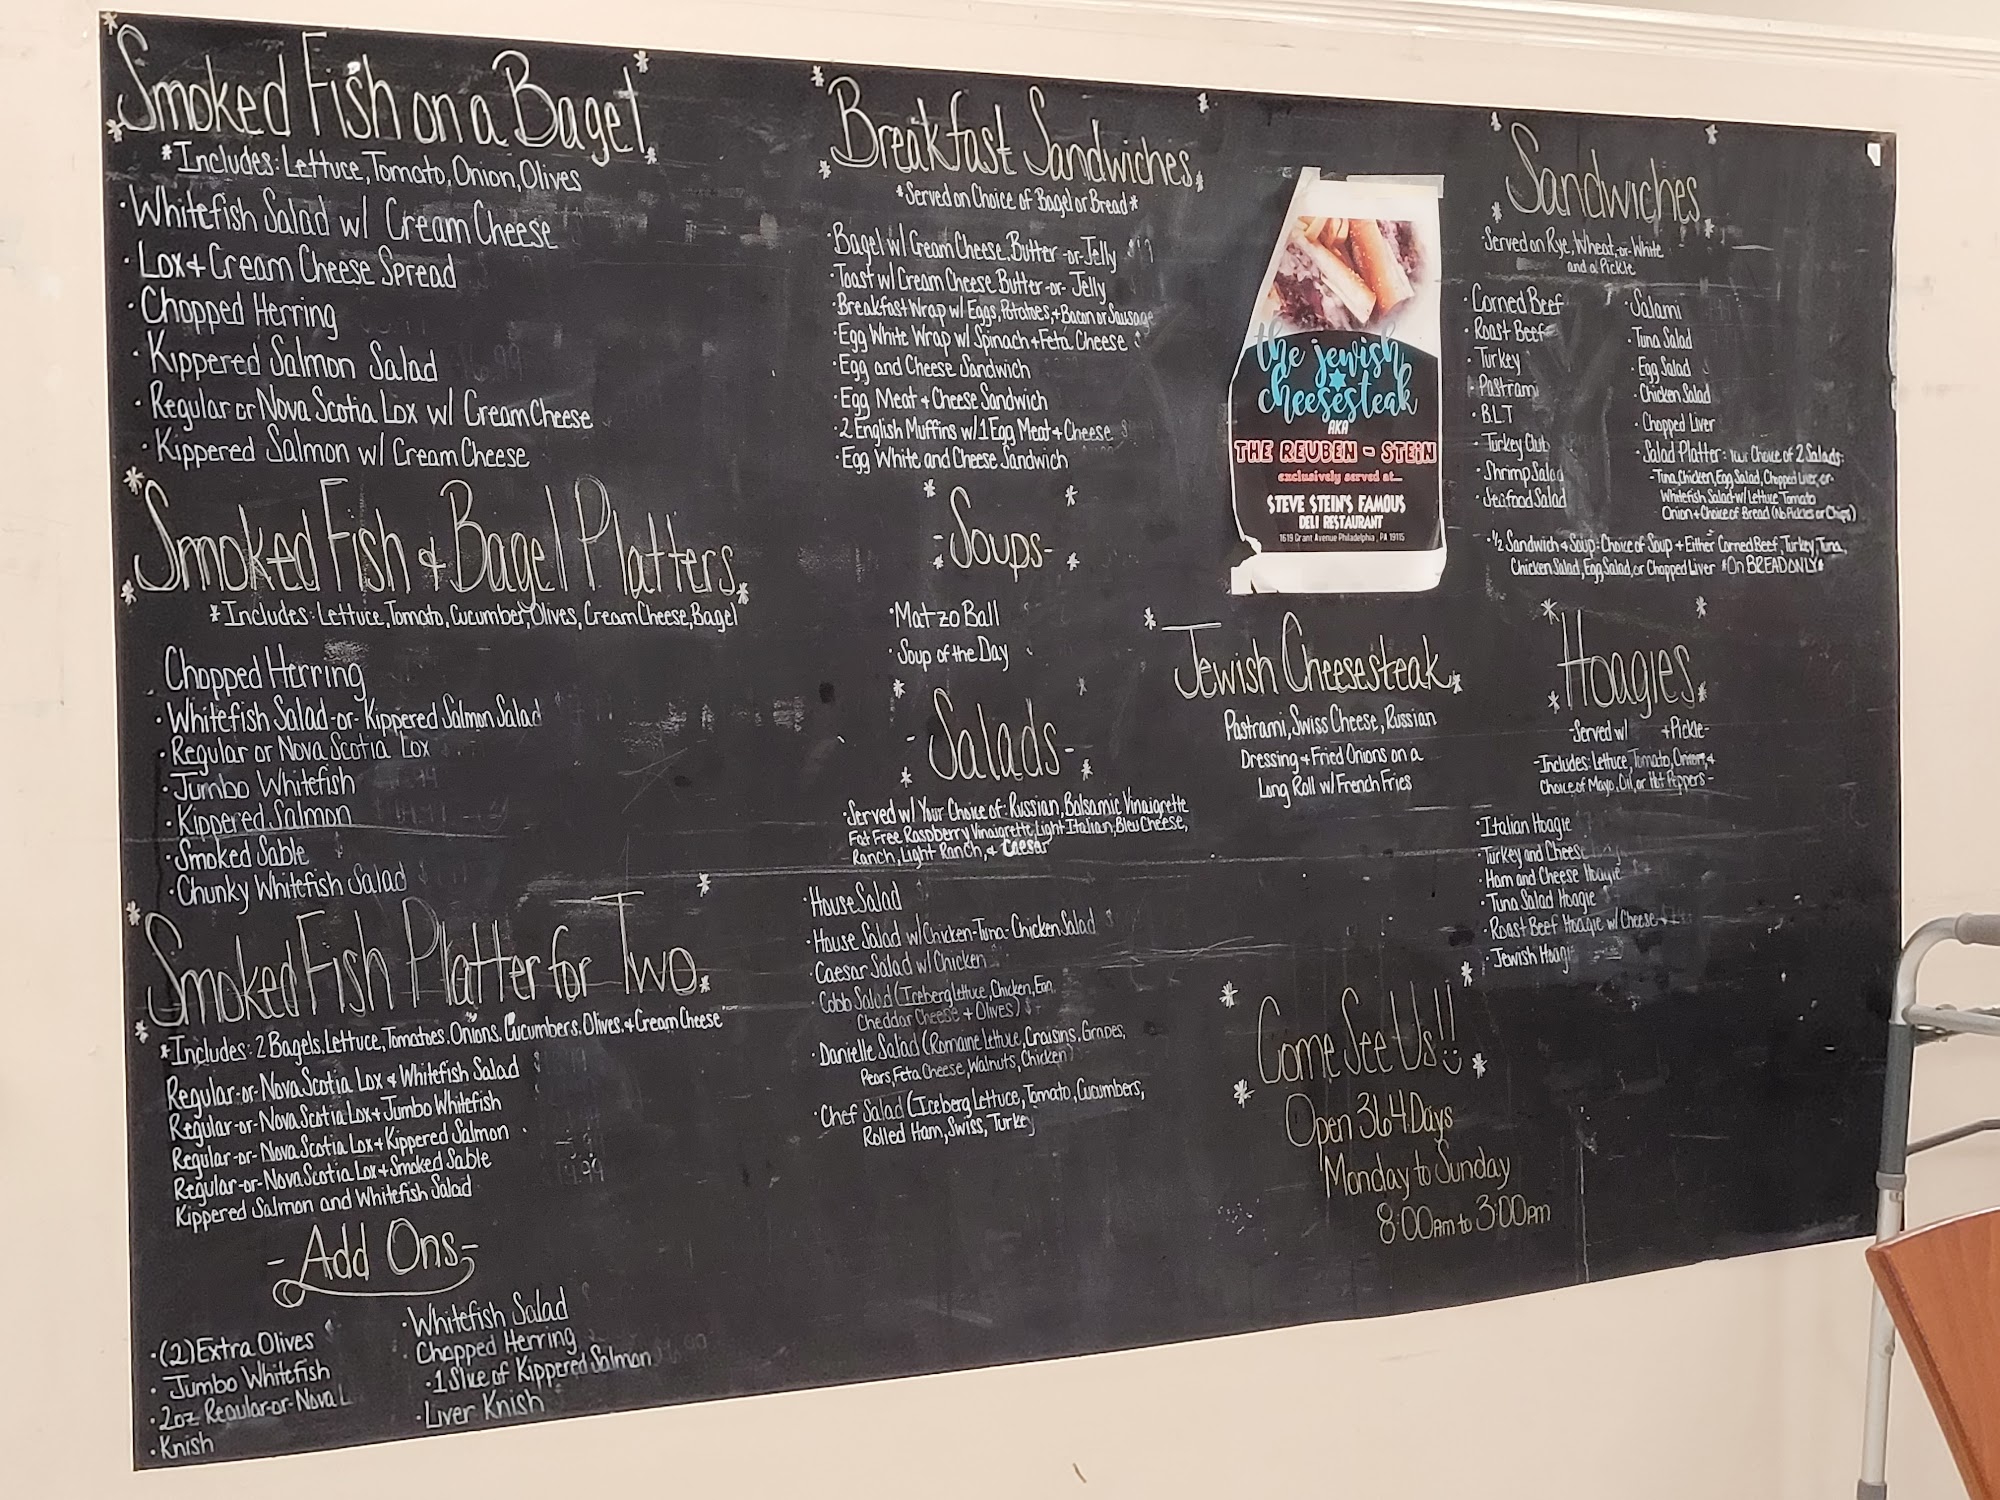 Smoked Fish on a Bagel
*Includes: Lettuce, Tomato, Onion, Olives
·Whitefish Salad w/ Cream Cheese
·Lox + Cream Cheese Spread
·Chopped Herring
·Kippered Salmon Salad
·Regular or Nova Scotia Lox w/ Cream Cheese
·Kippered Salmon w/ Cream Cheese
Smoked Fish & Bagel Platters
*Includes: Lettuce, Tomato, Cucumber, Olives, Cream Cheese, Bagel
Chopped Herring
·Whitefish Salad -or- Kippered Salmon Salad
·Regular or Nova Scotia Lox
·Jumbo Whitefish
·Kippered Salmon
·Smoked Sable
·Chunky Whitefish Salad
Smoked Fish Platter for Two
*Includes: 2 Bagels, Lettuce, Tomatoes, Onions, Cucumbers, Olives, + Cream Cheese
Regular -or- Nova Scotia Lox & Whitefish Salad
Regular -or- Nova Scotia Lox + Jumbo Whitefish
Regular -or- Nova Scotia Lox + Kippered Salmon
Regular -or- Nova Scotia Lox + Smoked Sable
Kippered Salmon and Whitefish Salad
-Add Ons-
·(2) Extra Olives
·Jumbo Whitefish
·2oz Regular -or- Nova L
·Knish
·Whitefish Salad
·Chopped Herring
·1 Slice of Kippered Salmon
·Liver Knish
Breakfast Sandwiches
*Served on Choice of Bagel or Bread*
·Bagel w/ Cream Cheese, Butter -or- Jelly
·Toast w/ Cream Cheese Butter -or- Jelly
·Breakfast Wrap w/ Eggs, Potatoes, + Bacon or Sausage
·Egg White Wrap w/ Spinach + Feta Cheese
·Egg and Cheese Sandwich
·Egg Meat + Cheese Sandwich
·2 English Muffins w/ 1 Egg Meat + Cheese
·Egg White and Cheese Sandwich
-Soups-
·Matzo Ball
·Soup of the Day
-Salads-
·Served w/ Your Choice of: Russian, Balsamic Vinaigrette
Fat Free Raspberry Vinaigrette, Light Italian, Bleu Cheese,
Ranch, Light Ranch, + Caesar
·House Salad
·House Salad w/ Chicken-Tuna-Chicken Salad
·Caesar Salad w/ Chicken
·Cobb Salad (Iceberg Lettuce, Chicken, Egg,
Cheddar Cheese + Olives)
·Danielle Salad (Romaine Lettuce, Craisins, Grapes,
Pears, Feta Cheese, Walnuts, Chicken)
·Chef Salad (Iceberg Lettuce, Tomato, Cucumbers,
Rolled Ham, Swiss, Turkey
the jewish
cheesesteak
AKA
THE REUBEN - STEIN
exclusively served at...
STEVE STEIN'S FAMOUS
DELI RESTAURANT
1619 Grant Avenue Philadelphia, PA 19115
Jewish Cheesesteak
Pastrami, Swiss Cheese, Russian
Dressing + Fried Onions on a
Long Roll w/ French Fries
Sandwiches
·Served on Rye, Wheat, -or- White
and a Pickle
·Corned Beef
·Roast Beef
·Turkey
·Pastrami
·B.L.T
·Turkey Club
·Shrimp Salad
·Seafood Salad
·Salami
·Tuna Salad
·Egg Salad
·Chicken Salad
·Chopped Liver
·Salad Platter: Your Choice of 2 Salads:
-Tuna, Chicken, Egg Salad, Chopped Liver, -or-
Whitefish Salad w/ Lettuce Tomato
Onion + Choice of Bread (No Pickles or Chips)
·½ Sandwich & Soup: Choice of Soup + Either Corned Beef, Turkey, Tuna,
Chicken Salad, Egg Salad, or Chopped Liver *On BREAD ONLY*
Hoagies
-Served w/ + Pickle-
-Includes: Lettuce, Tomato, Onion, +
Choice of Mayo, Oil, or Hot Peppers-
·Italian Hoagie
·Turkey and Cheese
·Ham and Cheese Hoagie
·Tuna Salad Hoagie
·Roast Beef Hoagie w/ Cheese
·Jewish Hoagi
Come See Us!!
Open 364 Days
Monday to Sunday
8:00am to 3:00pm